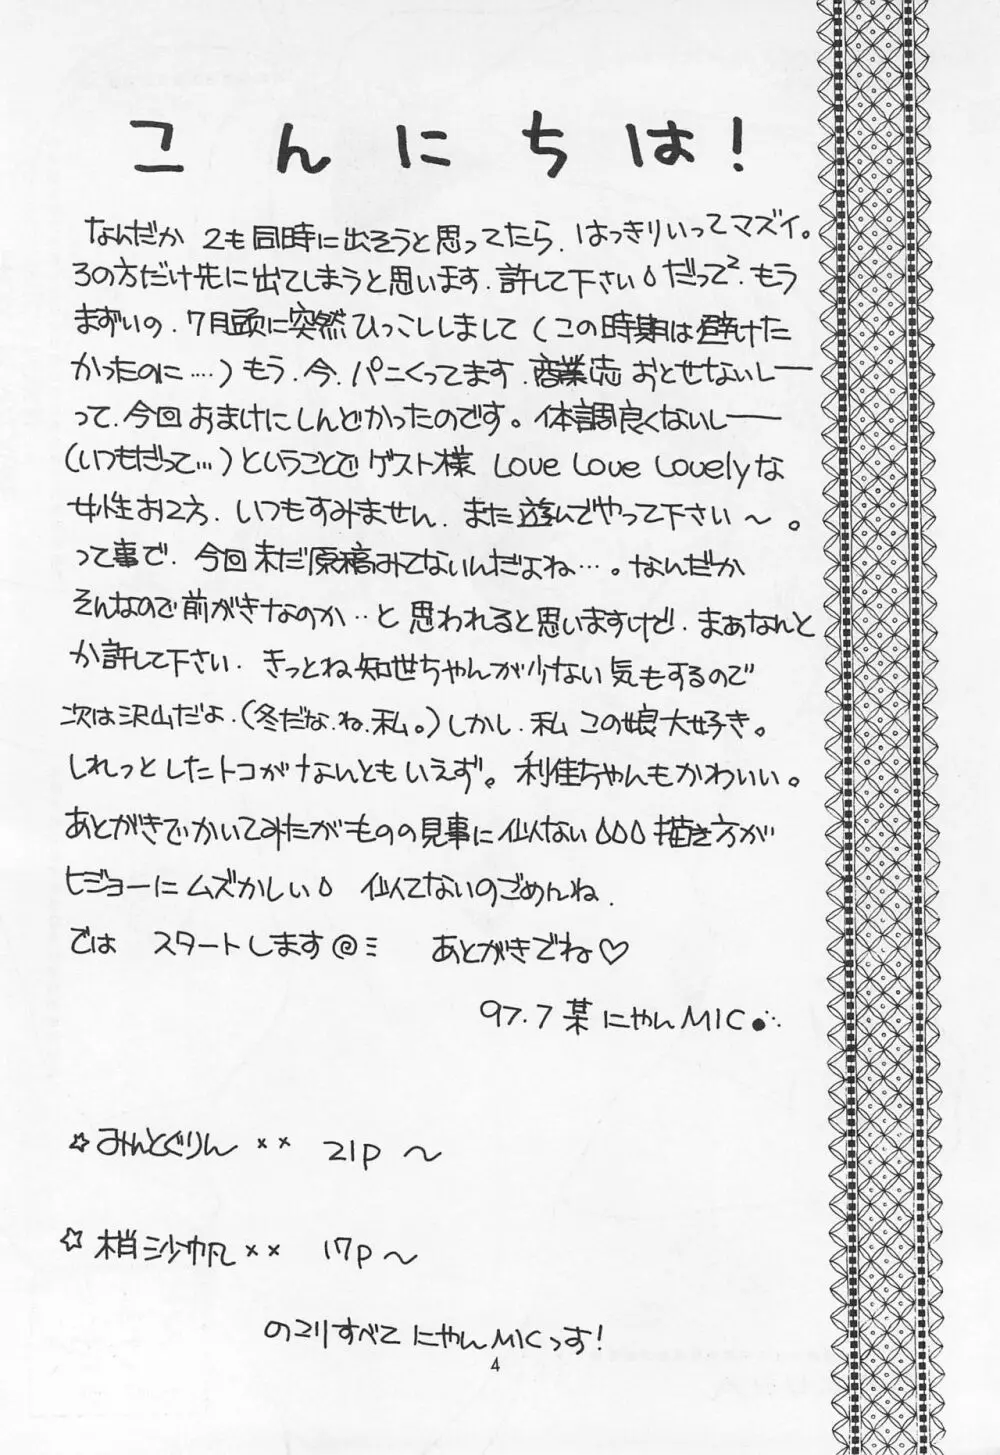 こんにちは!
なんだか 2も同時に出そうと思ってたら、はっきりいってマズイ。
3の方だけ先に出てしまうと思います、許して下さい だって²、もう
まずいの、7月頭に突然ひっこししまして(この時期は避けた
かったのに‥‥)もう、今、パニくってます、商業誌 おとせないしーー
って、今回おまけにしんどかったのです。体調良くないしーー
(いつもだって…)ということでゲスト様 Love Love Lovelyな
女性お2方、いつもすみません、また遊んでやって下さい〜。
って事で、今回未だ原稿みてないんだよね…。なんだか
そんなので前がきなのか‥と思われると思いますけど、まぁなんと
か許して下さい、きっとね知世ちゃんが少ない気もするので
次は沢山だよ、(冬だな、ね、私。)しかし、私 この娘大好き。
しれっとしたトコがなんともいえず。利佳ちゃんもかわいい。
あとがきでかいてみたがものの見事に似ない 描き方が
ヒジョーにムズかしい 似てないのごめんね、
では スタートします@ミ あとがきでね♡
97.7 某 にゃんMIC
☆みんとぐりん×× 21p 〜
☆梢 沙帆×× 17p 〜
のコリすべて にゃんMICっす!
4